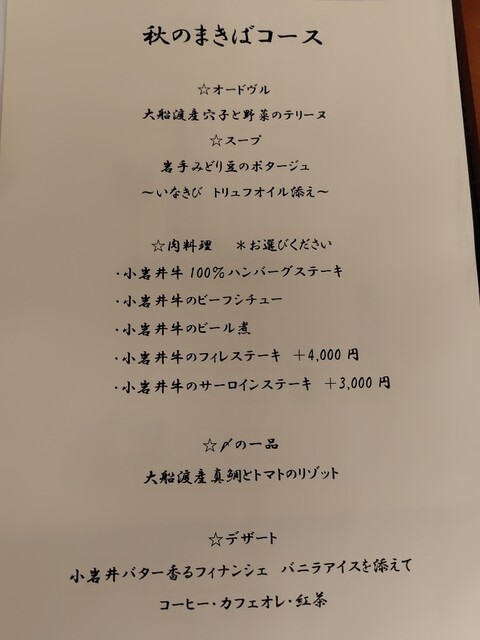 秋のまきばコース
☆オードヴル
大船渡産穴子と野菜のテリーヌ
☆スープ
岩手みどり豆のポタージュ
～いなきび トリュフオイル添え～
☆肉料理 ＊お選びください
・小岩井牛 100%ハンバーグステーキ
・小岩井牛のビーフシチュー
・小岩井牛のビール煮
・小岩井牛のフィレステーキ ＋4,000 円
・小岩井牛のサーロインステーキ ＋3,000 円
☆〆の一品
大船渡産真鯛とトマトのリゾット
☆デザート
小岩井バター香るフィナンシェ バニラアイスを添えて
コーヒー・カフェオレ・紅茶